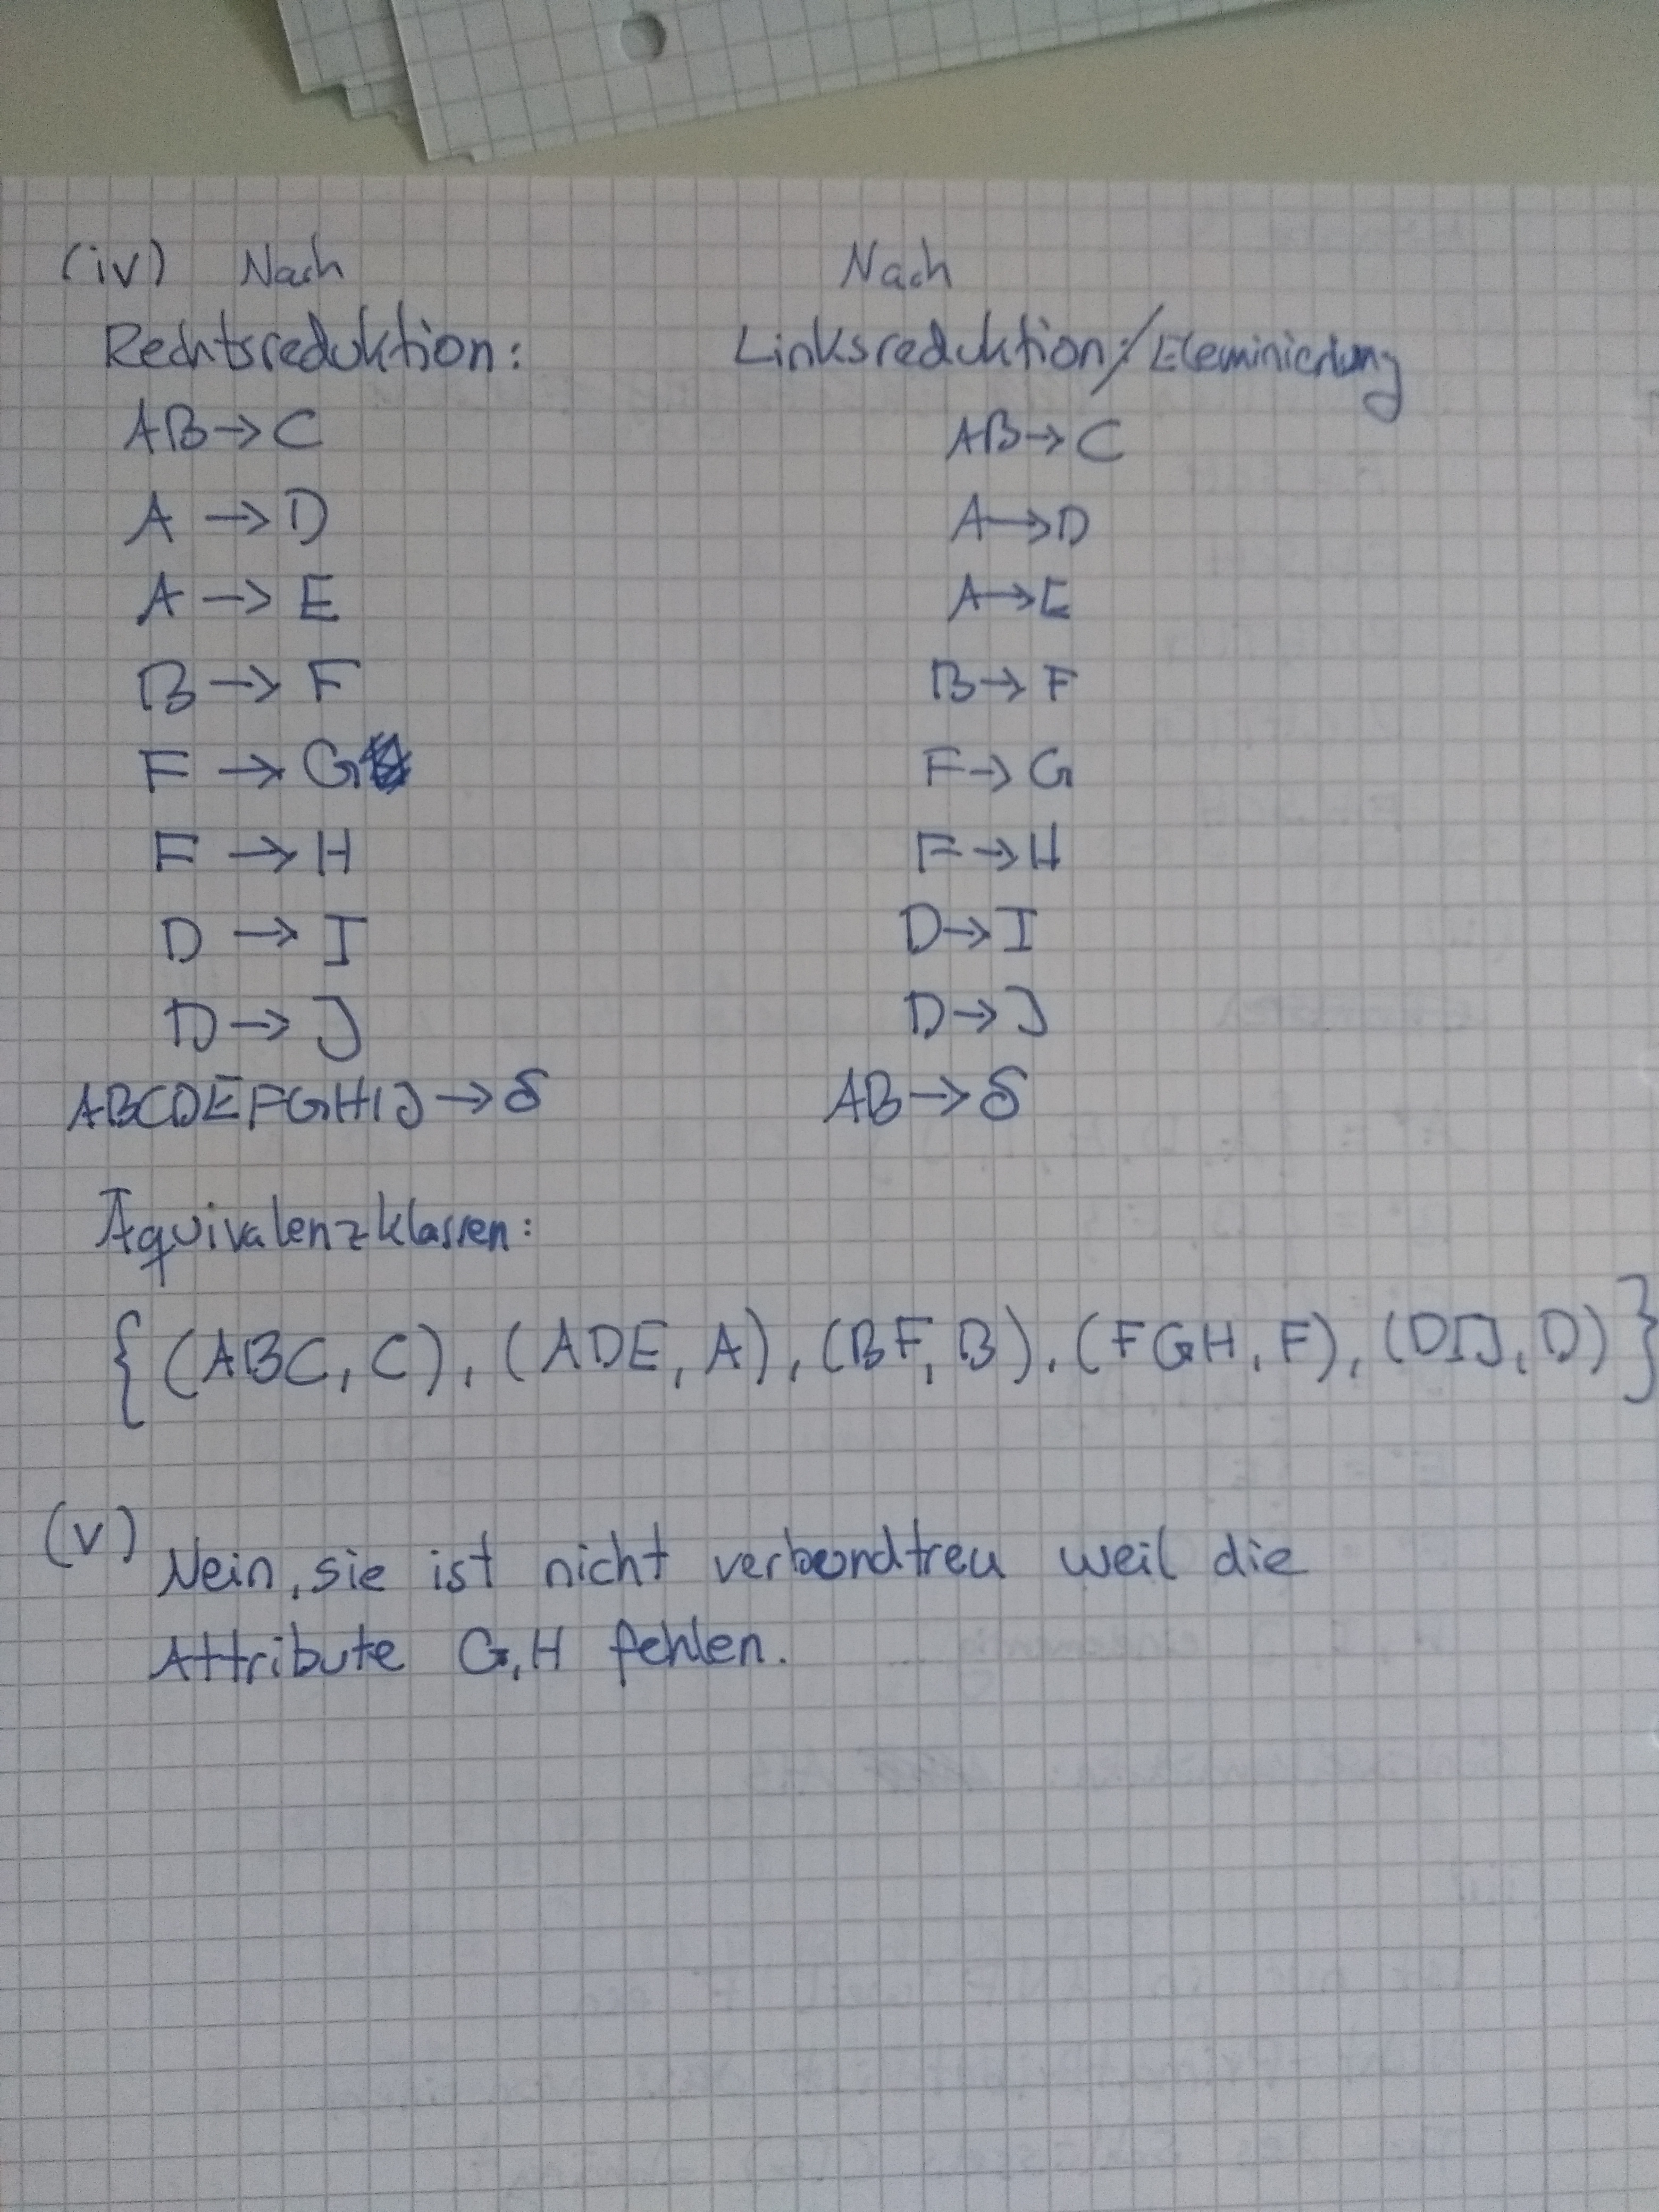 (iv) Nach
Rechtsreduktion:
AB→C
A→D
A→E
B→F
F→G
F→H
D→I
D→J
ABCDEFGHIJ→δ
Nach
Linksreduktion:/Eleminierung
AB→C
A→D
A→E
B→F
F→G
F→H
D→I
D→J
AB→δ
Äquivalenzklassen:
{(ABC, C), (ADE, A), (BF, B), (FGH, F), (DIJ, D)}
(v) Nein, sie ist nicht verbundtreu weil die
Attribute G,H fehlen.